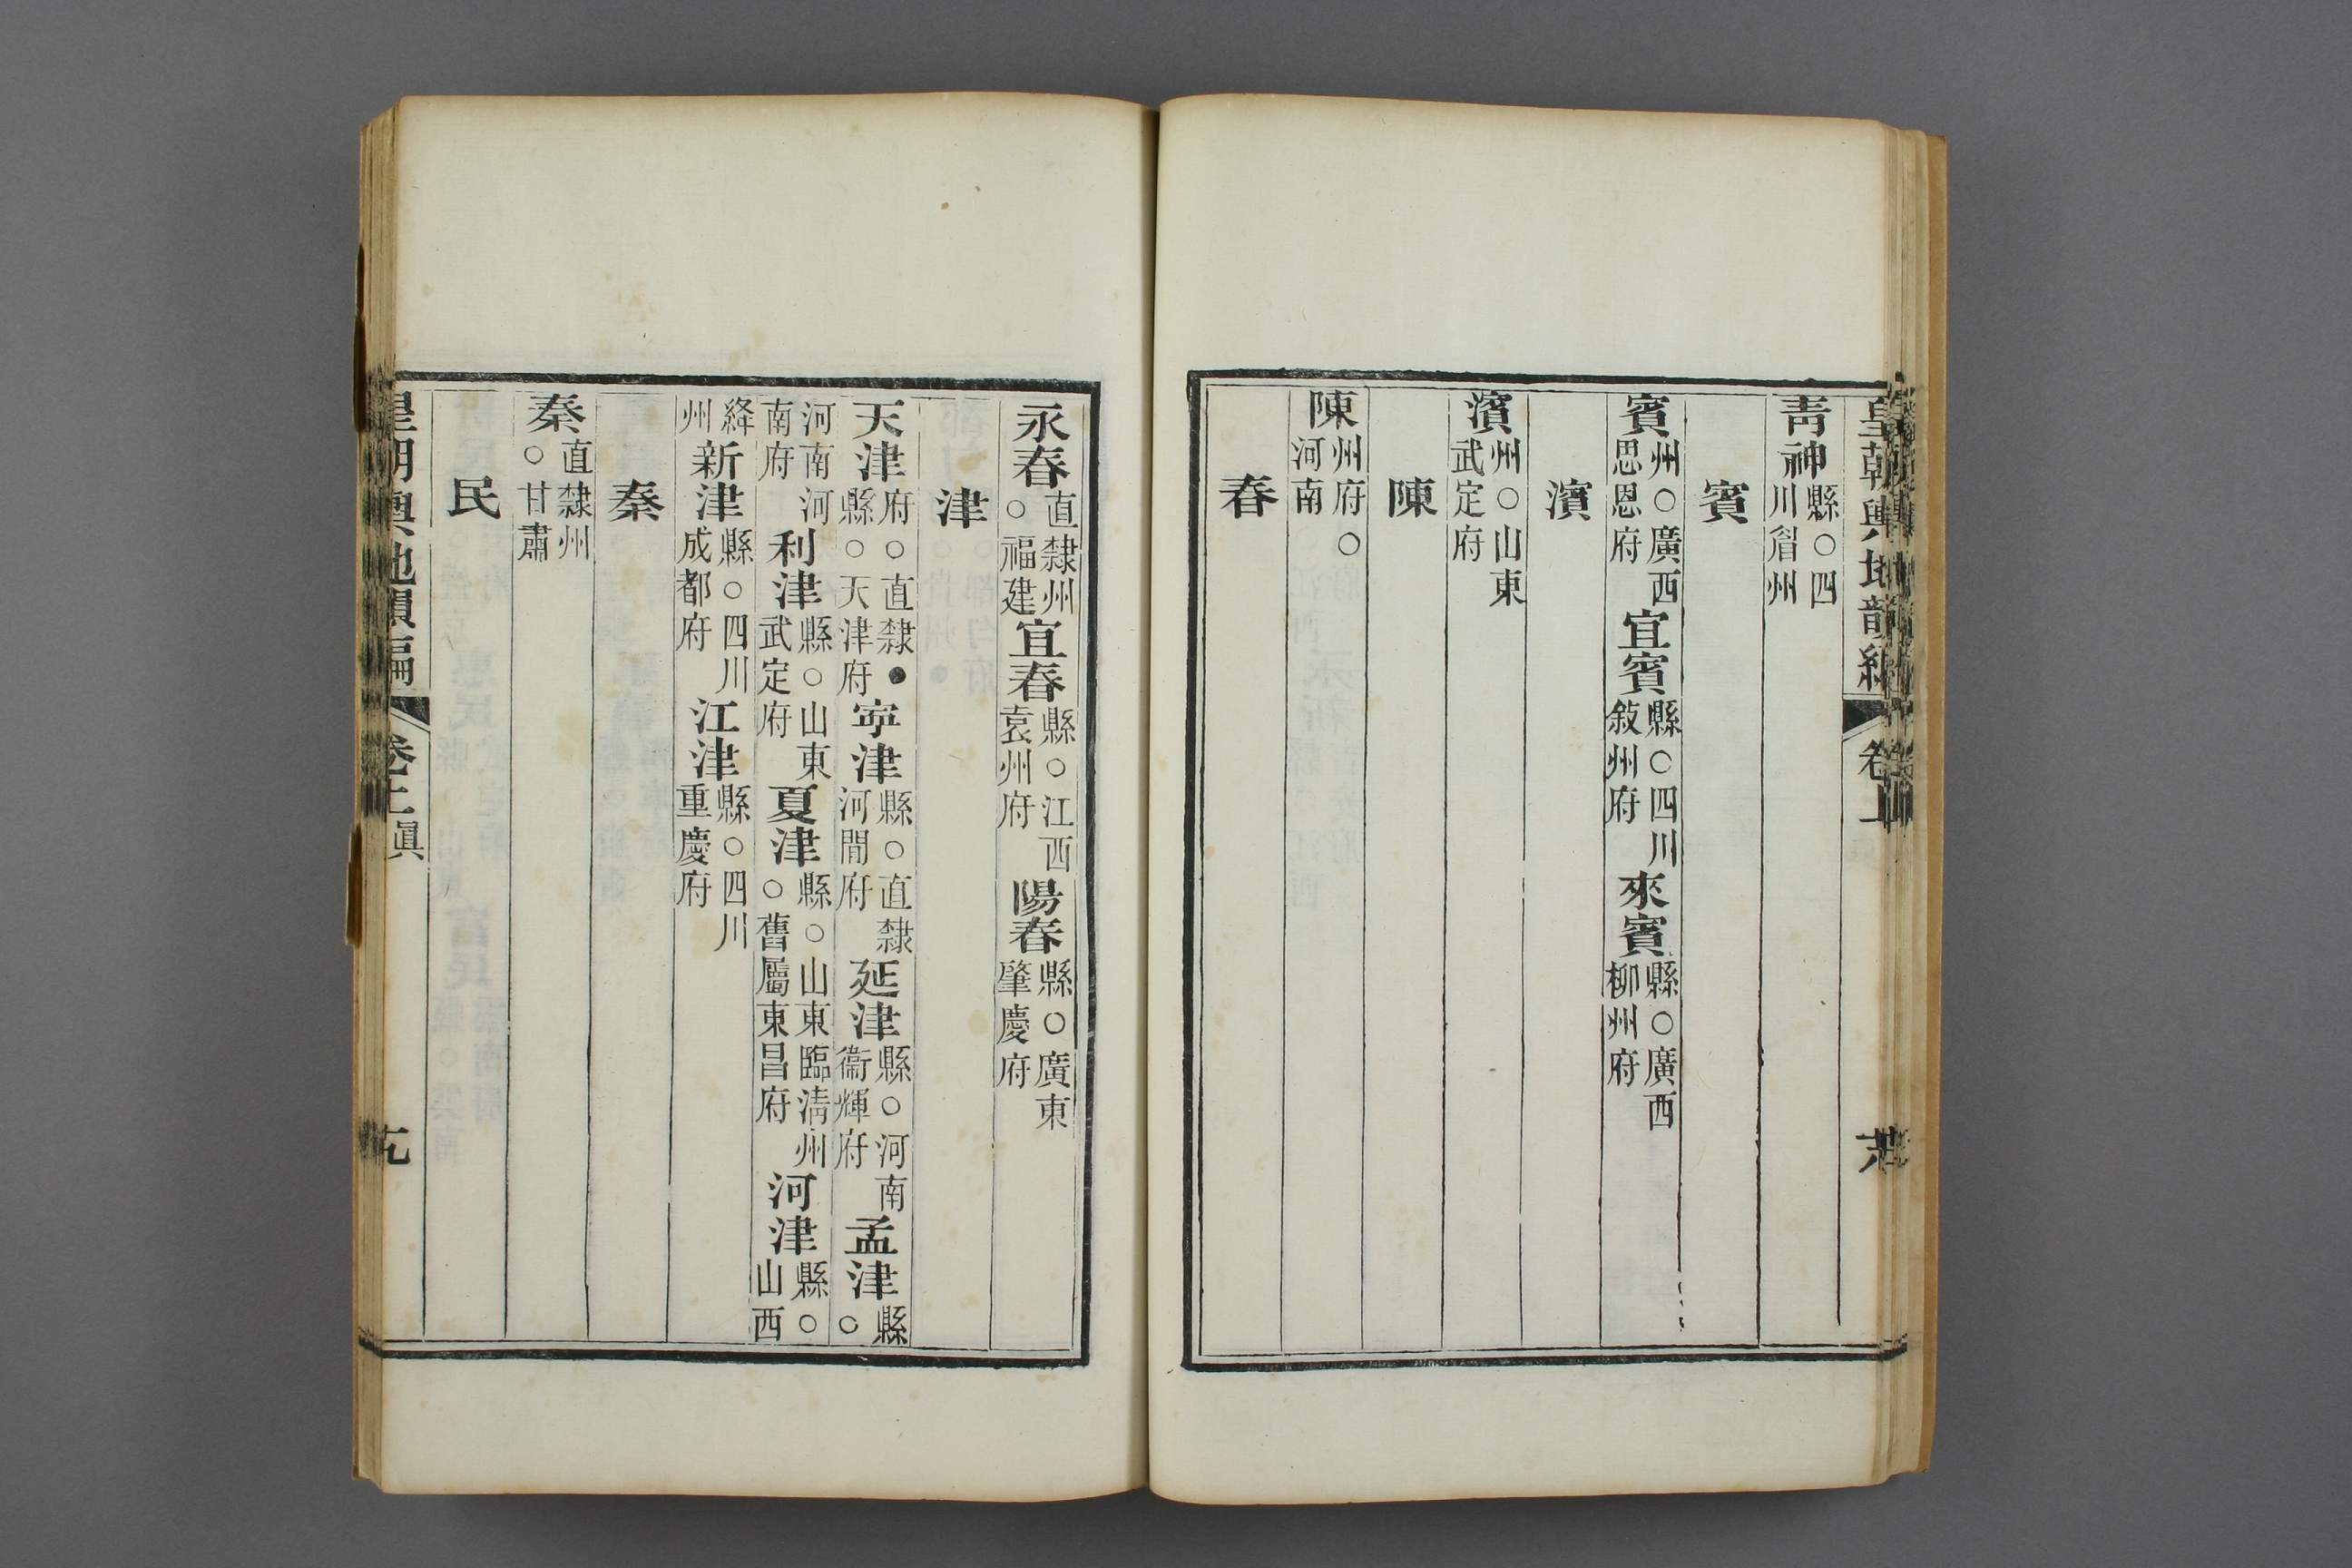 皇朝輿地韻編 卷上
青神縣○四川眉州
賓
賓州○廣西思恩府 宜賓縣○四川敘州府 來賓縣○廣西柳州府
濱
濱州○山東武定府
陳
陳州府○河南
春
永春直隸州○福建 宜春縣○江西袁州府 陽春縣○廣東肇慶府
津
天津府○直隸●縣○天津府 寕津縣○直隸河間府 延津縣○河南衞輝府 孟津縣○
河南河南府 利津縣○山東武定府 夏津縣○山東臨淸州○舊屬東昌府 河津縣○山西
絳州 新津縣○四川成都府 江津縣○四川重慶府
秦
秦直隸州○甘肅
民
皇朝輿地韻編 卷上 眞